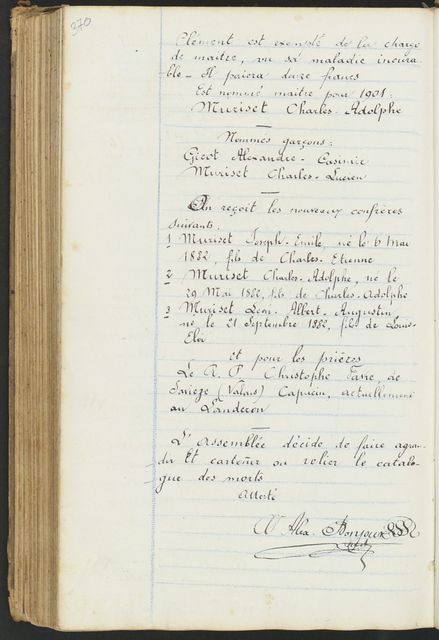 370
Clément est exempté de la charge
de maître, vu sa maladie incura-
ble - Il paiera douze francs
Est nommé maître pour 1901:
Muriset Charles-Adolphe
Nommés garçons:
Gicot Alexandre-Casimir
Muriset Charles-Lucien
On reçoit les nouveaux confrères
suivants.
1 Muriset Joseph-Emile, né le 6 Mai
1882, fils de Charles Etienne
2 Muriset Charles-Adolphe, né le
29 Mai 1882, fils de Charles-Adolphe
3 Muriset Léon-Albert-Augustin
né le 21 Septembre 1882, fils de Louis-
Eloi
et pour les prières
Le R. P. Christophe Favre, de
Savièze (Valais) Capucin, actuellement
au Landeron
L'Assemblée décide de faire agran-
dir et cartonner ou relier le catalo-
gue des morts
Attesté
Alex. Bonjour